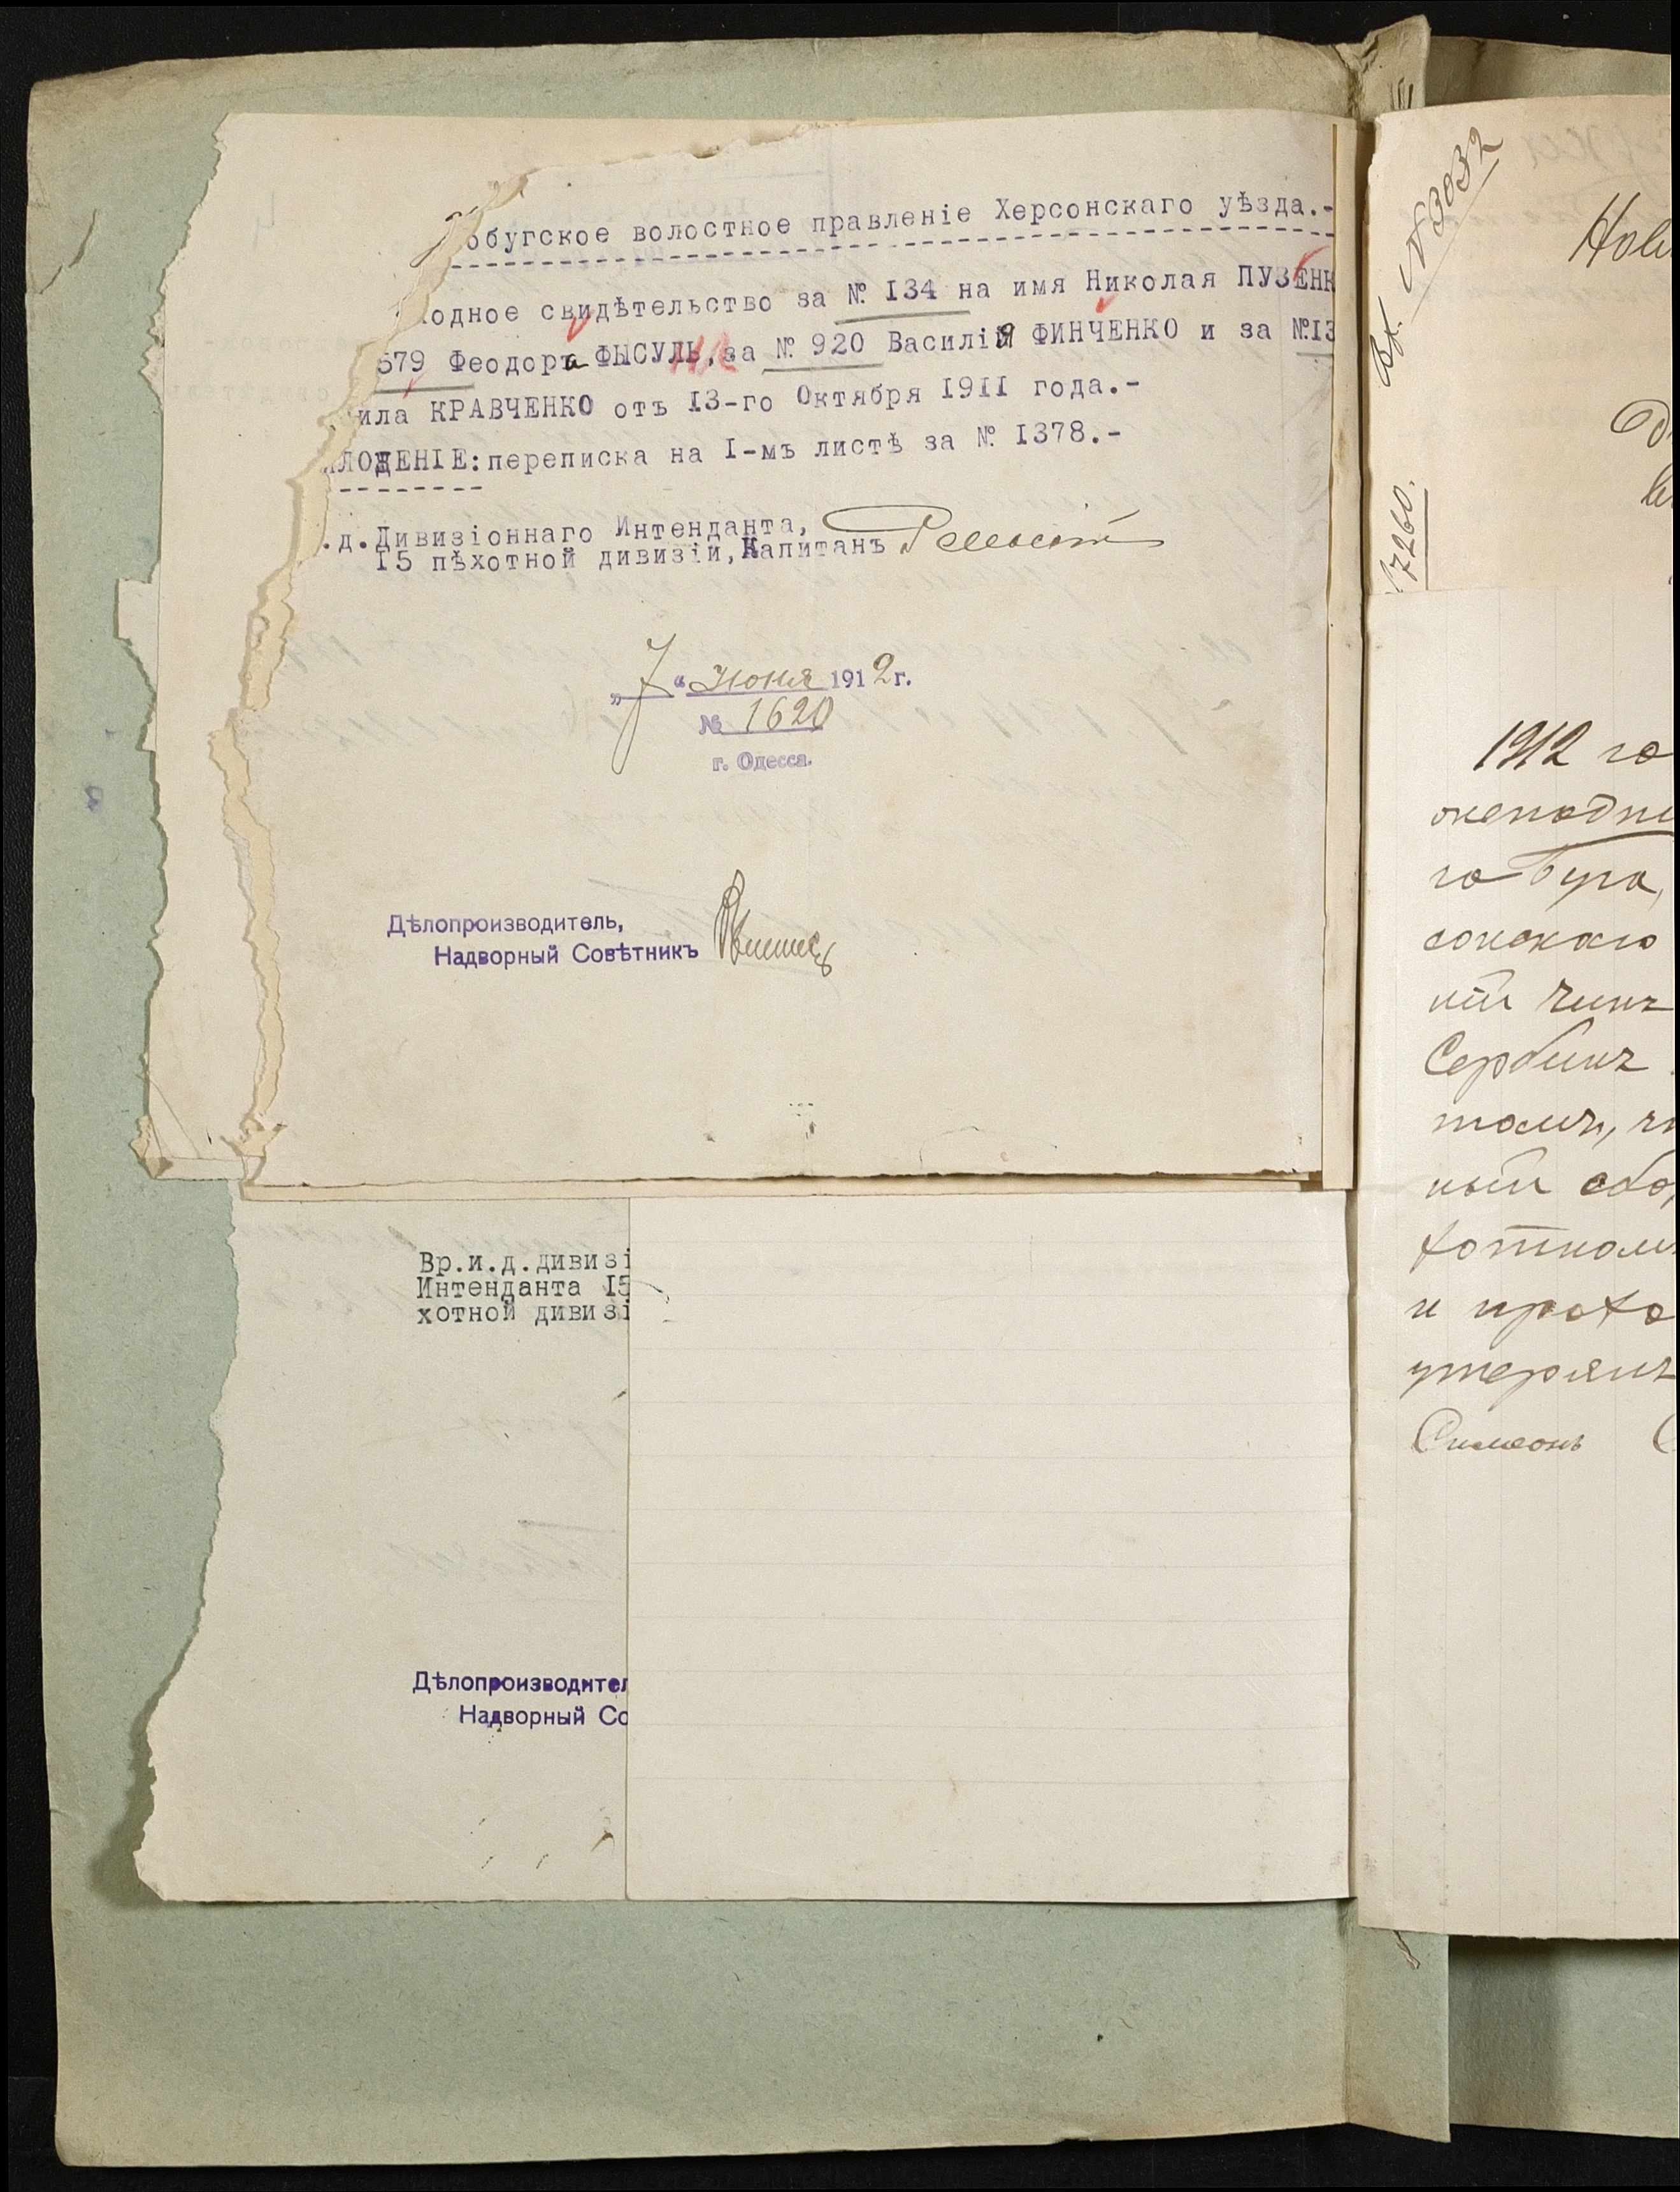 обугское волостное правленіе Херсонскаго уѣзда.-
ходное свидѣтельство за № 134 на имя Николая ПУЗЕНК
579 Феодора ФЫСУЛЬ, за № 920 Василія ФИНЧЕНКО и за №13
ила КРАВЧЕНКО отъ 13-го Октября 1911 года.-
ЛОЖЕНІЕ: переписка на I-мъ листѣ за № 1378.-
.д. Дивизіоннаго Интенданта,
15 пѣхотной дивизіи, Капитанъ
„7“ Июня 1912 г.
№ 1620
г. Одесса.
Дѣлопроизводитель,
Надворный Совѣтникъ
Вр.и.д.дивизі
Интенданта 15
хотной дивизі
Дѣлопроизводител
Надворный Со
Вх. №3032
7260.
Нов
1912 го
го Буга,
сонскаго
ній чинъ
Сербинъ
тамъ, чт
ный сбо
хотном
и прохо
утерялъ
Симеонъ